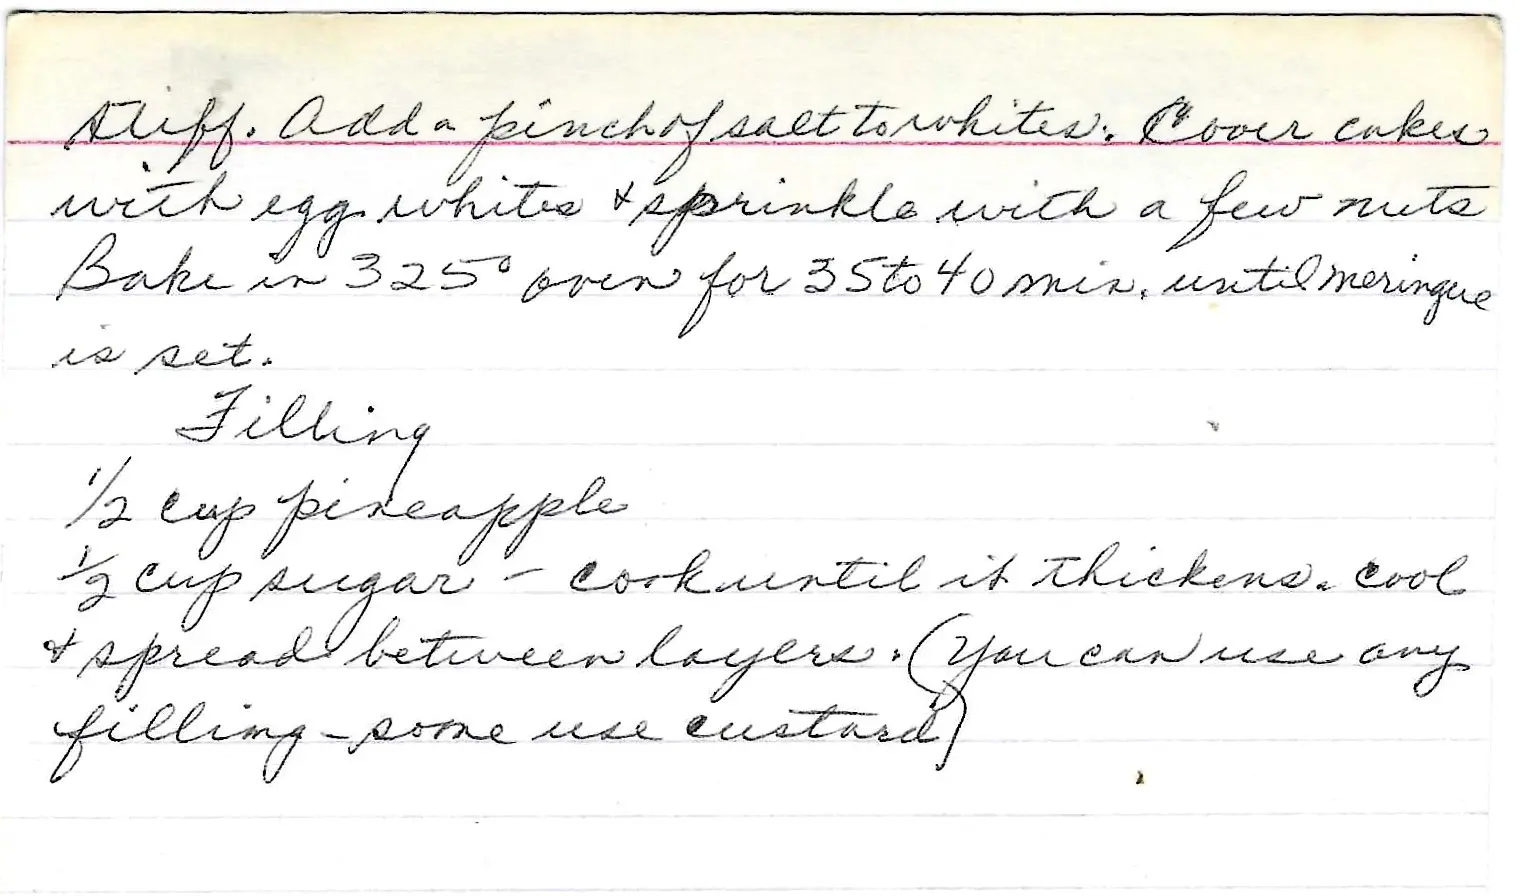 stiff. Add a pinch of salt to whites. Cover cakes
with egg whites & sprinkle with a few nuts
Bake in 325° oven for 35 to 40 min. until meringue
is set.
Filling
1/2 cup pineapple
1/2 cup sugar - cook until it thickens. cool
& spread between layers. (You can use any
filling - some use custard)